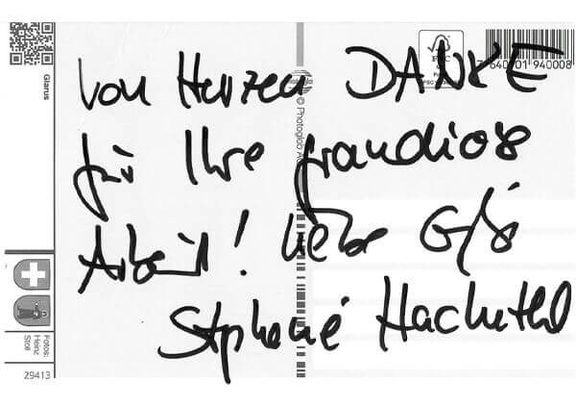 von Herzen DANKE
für Ihre grandiose
Arbeit! Liebe
Stephanie
Glarus
© Photoglob
FSC
7 640101 940008
Fotos:
Heinz
Stoll
29413